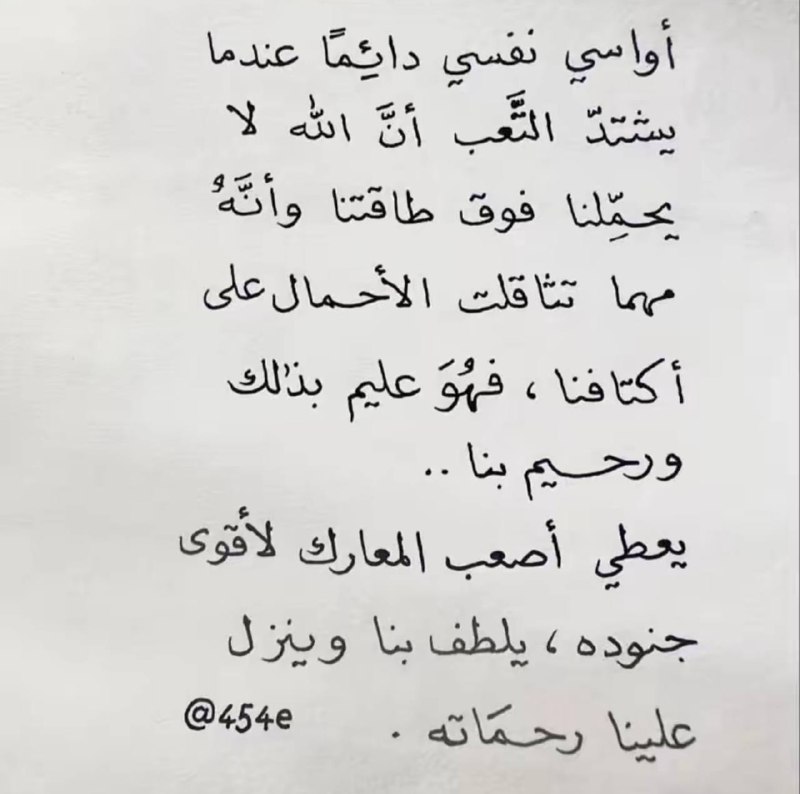 أواسي نفسي دائِمًا عندما
يشتدّ التَّعب أنَّ الله لا
يحمِّلنا فوق طاقتنا وأنَّهُ
مهما تثاقلت الأحمال على
أكتافنا ، فهُوَ عليم بذٰلك
ورحيم بنا ..
يعطي أصعب المعارك لأقوى
جنوده ، يلطف بنا وينزل
علينا رحمَاته .
@454e